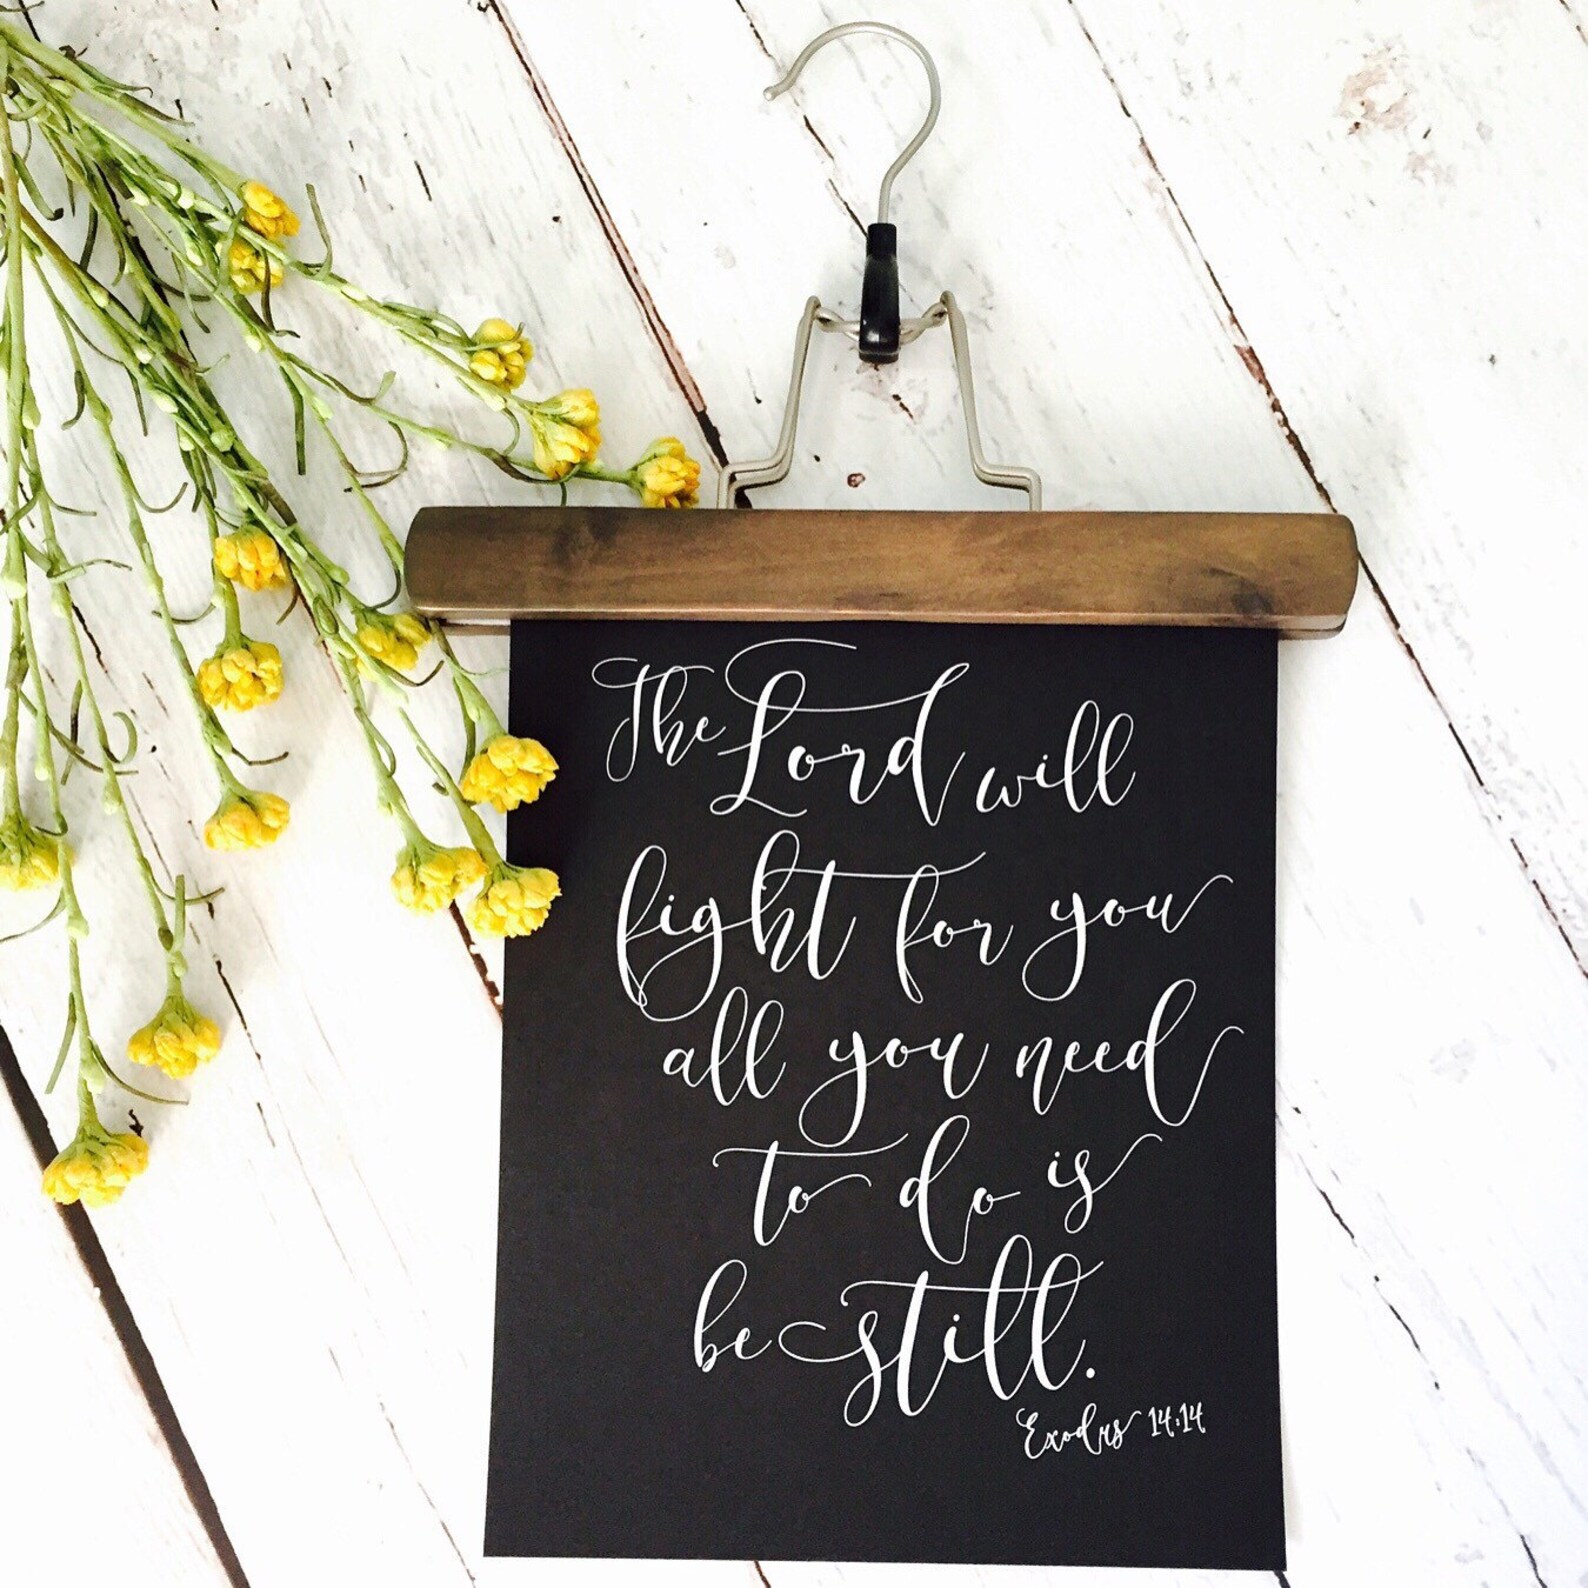 The Lord will
fight for you
all you need
to do is
be still.
Exodus 14:14